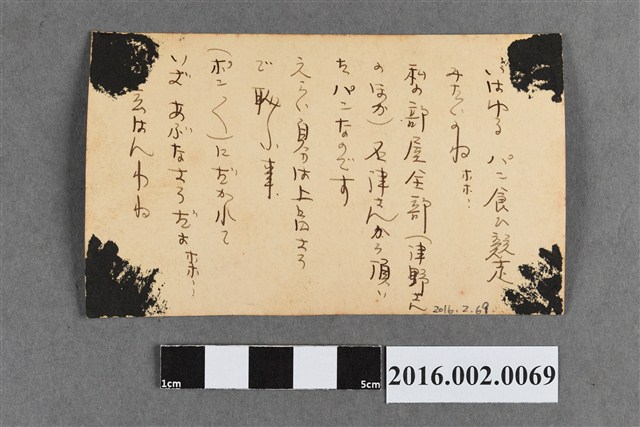 いはゆる パン食ひ競走
みたいのね ホホ…
私の部屋全部(津野さん
のほか)石津さんから頂い
たパンなのです
えらい自分は上品さう
で 恥しい事
(ポンく)にだかれて
いざ あぶなさうだお ホホ…
云はんわね
2016.2.69.
1cm
5cm
2016.002.0069